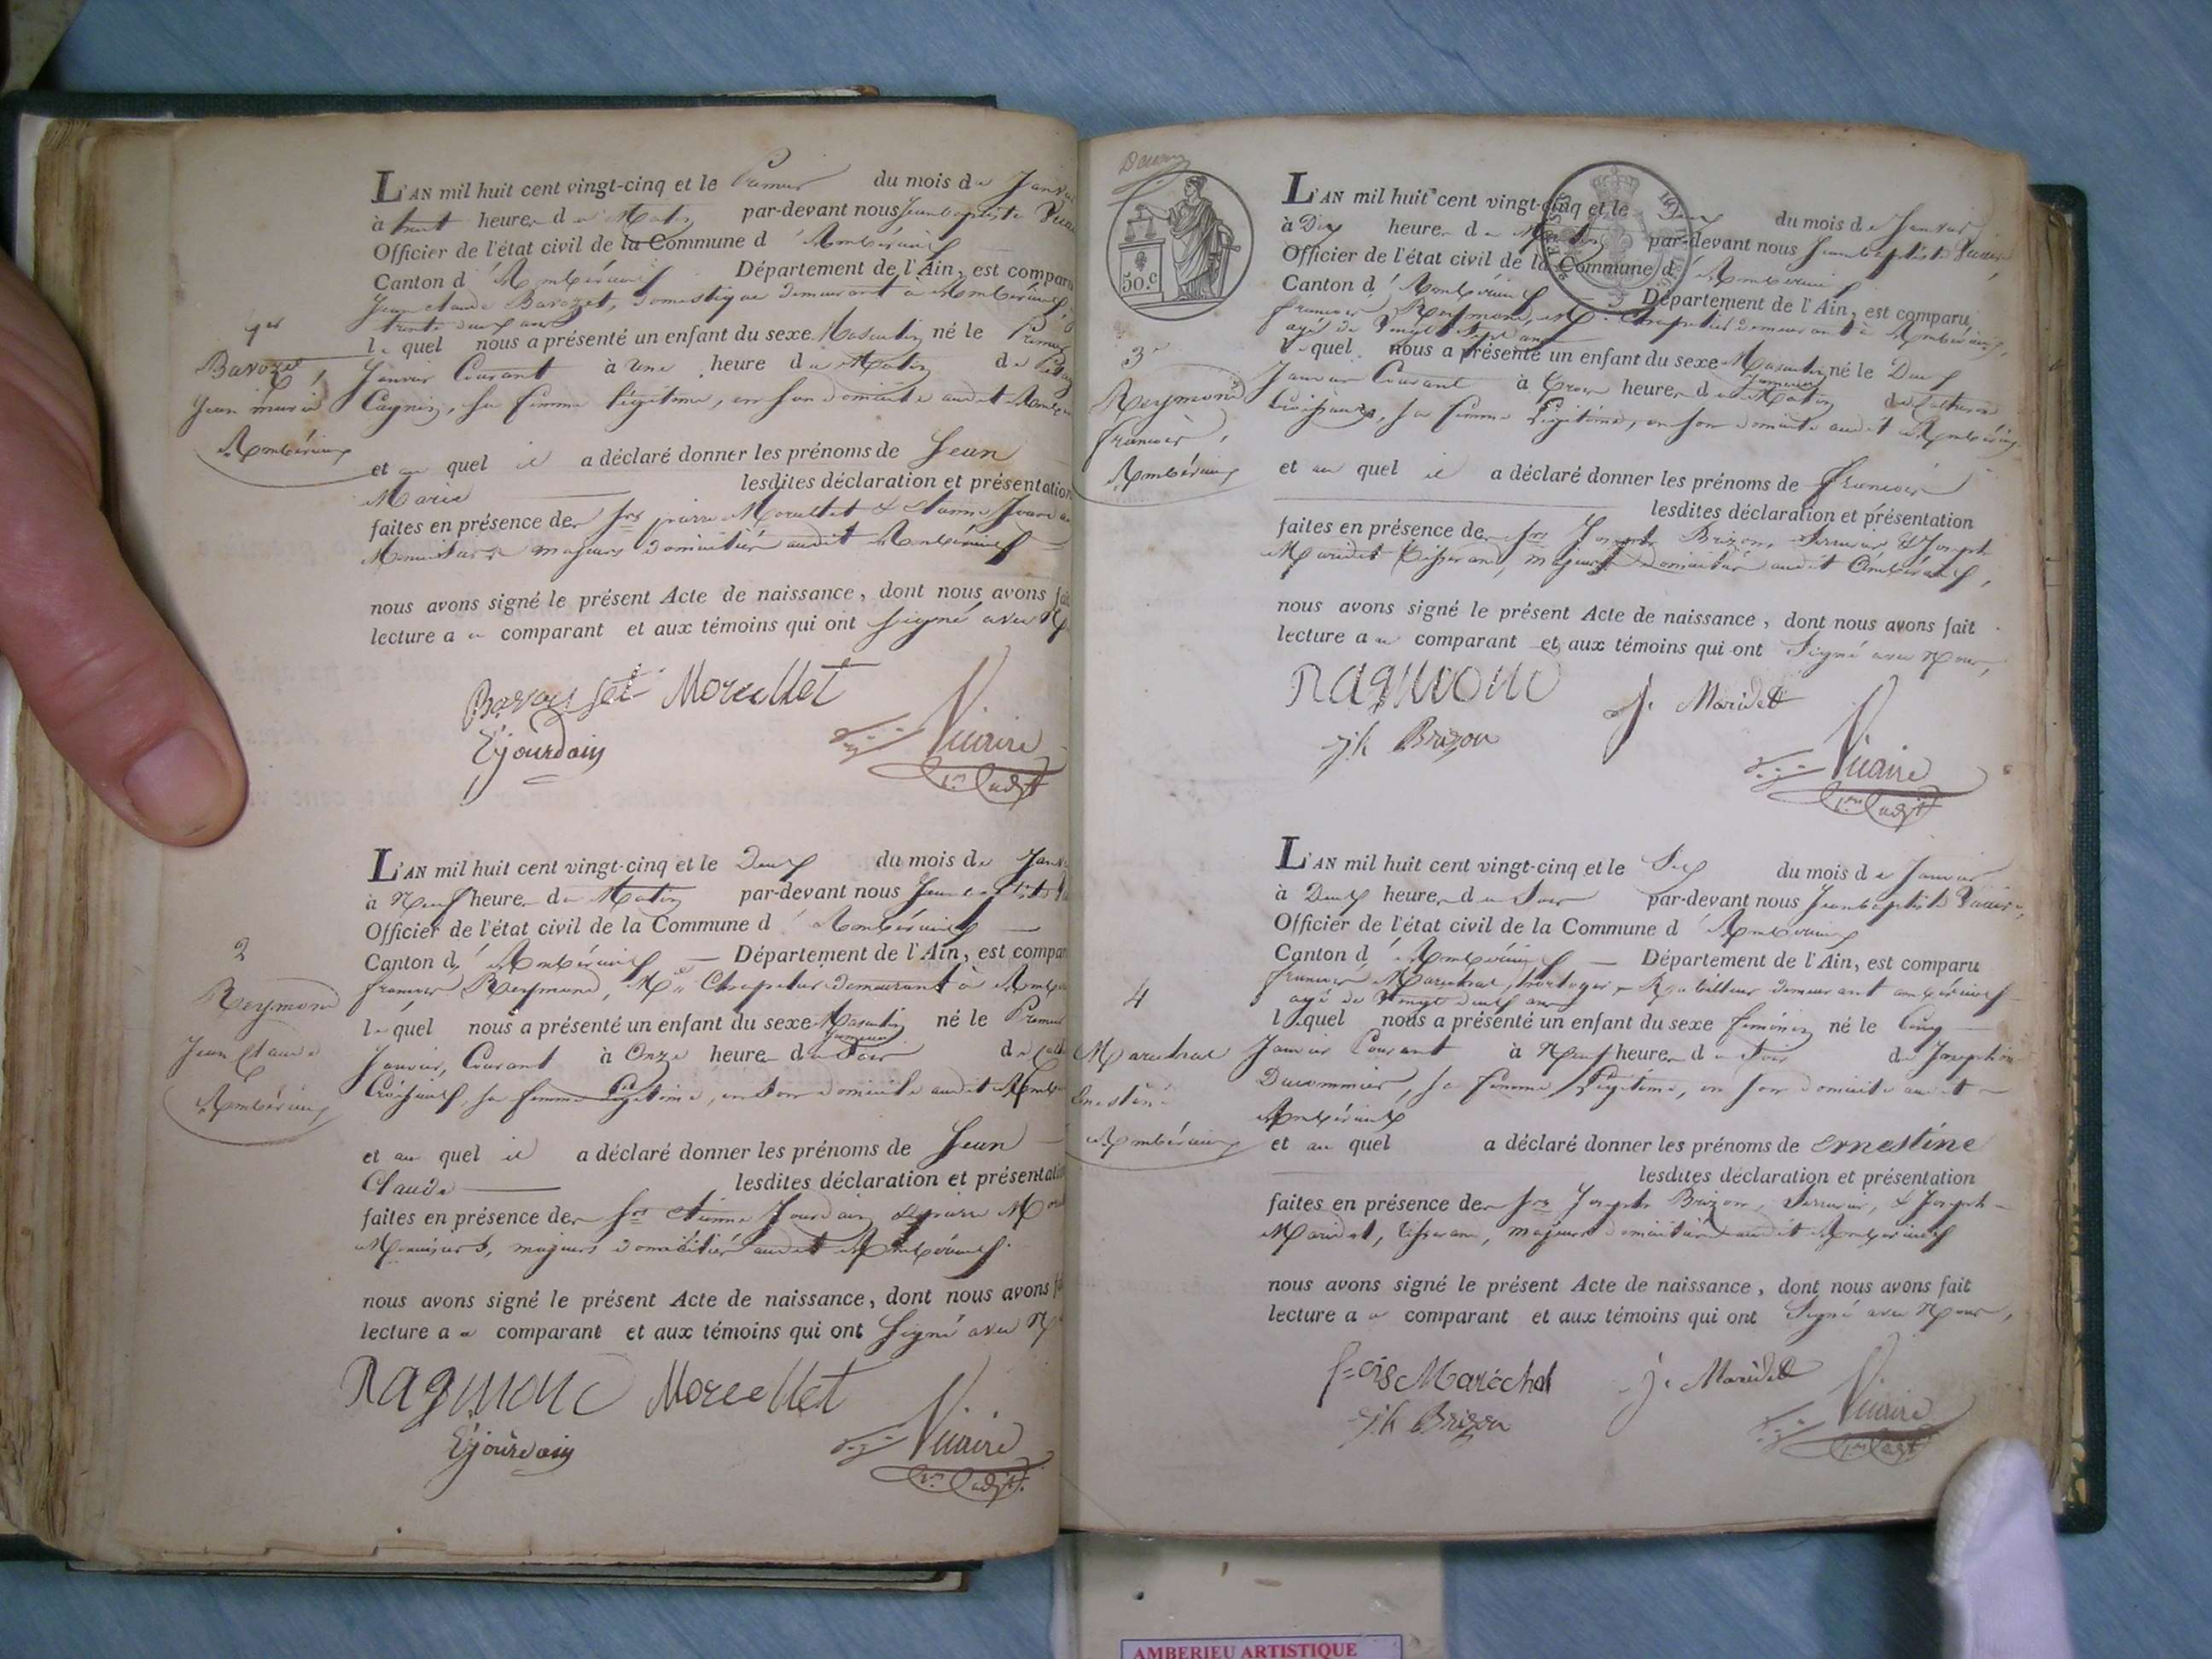 1er
Bavozet
Jean marie
Ambérieux
L'AN mil huit cent vingt-cinq et le Premier du mois de
à huit heures du Matin par-devant nous Jeanbaptiste
Officier de l'état civil de la Commune d'Ambérieux
Canton d'Ambérieux Département de l'Ain, est comparu
Jean claude Bavozet, domestique demeurant à Ambérieux,
trente deux ans
lequel nous a présenté un enfant du sexe Masculin né le Premier
Janvier Courant à une heure du Matin de
sa femme légitime, en son domicile audit
et au quel il a déclaré donner les prénoms de Jean
Marie lesdites déclaration et présentation
faites en présence des Srs pierre Morellet &
majeurs domiciliés audit Ambérieux
nous avons signé le présent Acte de naissance, dont nous avons fait
lecture au comparant et aux témoins qui ont signé avec
Morellet
Ejourdain Vicaire
2
Reymond
Jean Claude
Ambérieux
L'AN mil huit cent vingt-cinq et le Deux du mois de
à Neuf heures du Matin par-devant nous
Officier de l'état civil de la Commune d'Ambérieux
Canton d'Ambérieux Département de l'Ain, est
francois Reymond, Md Chapelier demeurant à
lequel nous a présenté un enfant du sexe Masculin né le Premier
jumeau
Janvier, Courant à Onze heures du Soir de
sa femme Légitime, en son domicile audit
et au quel il a déclaré donner les prénoms de Jean
Claude lesdites déclaration et présentation
faites en présence des Srs Etienne Jourdain & pierre
majeurs domiciliés audit Ambérieux
nous avons signé le présent Acte de naissance, dont nous avons
lecture au comparant et aux témoins qui ont signé avec
Morellet
Ejourdain Vicaire
50.c
3e
Reymond
francois,
Ambérieux
L'AN mil huit cent vingt-cinq et le Deux du mois de Janvier
à Dix heures du Matin par-devant nous Jeanbaptiste Vicaire
Officier de l'état civil de la Commune d'Ambérieux
Canton d'Ambérieux Département de l'Ain, est comparu
francois Reymond, Md Chapelier demeurant à Ambérieux,
agé de Vingt Sept ans
lequel nous a présenté un enfant du sexe Masculin né le Deux
jumeau
Janvier Courant à trois heures du Matin de Catherine
sa femme Légitime, en son domicile audit Ambérieux
et au quel il a déclaré donner les prénoms de francois
lesdites déclaration et présentation
faites en présence des Srs Joseph Brizon, Serrurier, & Joseph
Maridet tisserand, majeurs domiciliés audit Ambérieux,
nous avons signé le présent Acte de naissance, dont nous avons fait
lecture au comparant et aux témoins qui ont Signé avec Nous,
J. Maridet
jh Brizon Vicaire
4
Marechal
Ernestine
Ambérieux
L'AN mil huit cent vingt-cinq et le Six du mois de Janvier
à Deux heures du Soir par-devant nous Jeanbaptiste Vicaire,
Officier de l'état civil de la Commune d'Ambérieux
Canton d'Ambérieux Département de l'Ain, est comparu
francois Marechal, horloger Rabilleur demeurant ambérieux
agé de Vingt deux ans
lequel nous a présenté un enfant du sexe féminin né le Cinq
Janvier Courant à Neuf heures du Soir de Josephine
Ducommier, sa femme Légitime, en son domicile audit
Ambérieux
et au quel a déclaré donner les prénoms de ernestine
lesdites déclaration et présentation
faites en présence des Srs Joseph Brizon, Serrurier, & Joseph
Maridet, tisserand, majeurs domiciliés audit Ambérieux
nous avons signé le présent Acte de naissance, dont nous avons fait
lecture au comparant et aux témoins qui ont Signé avec Nous,
f=ois Maréchal J. Maridet
jh Brizon Vicaire
AMBERIEU ARTISTIQUE